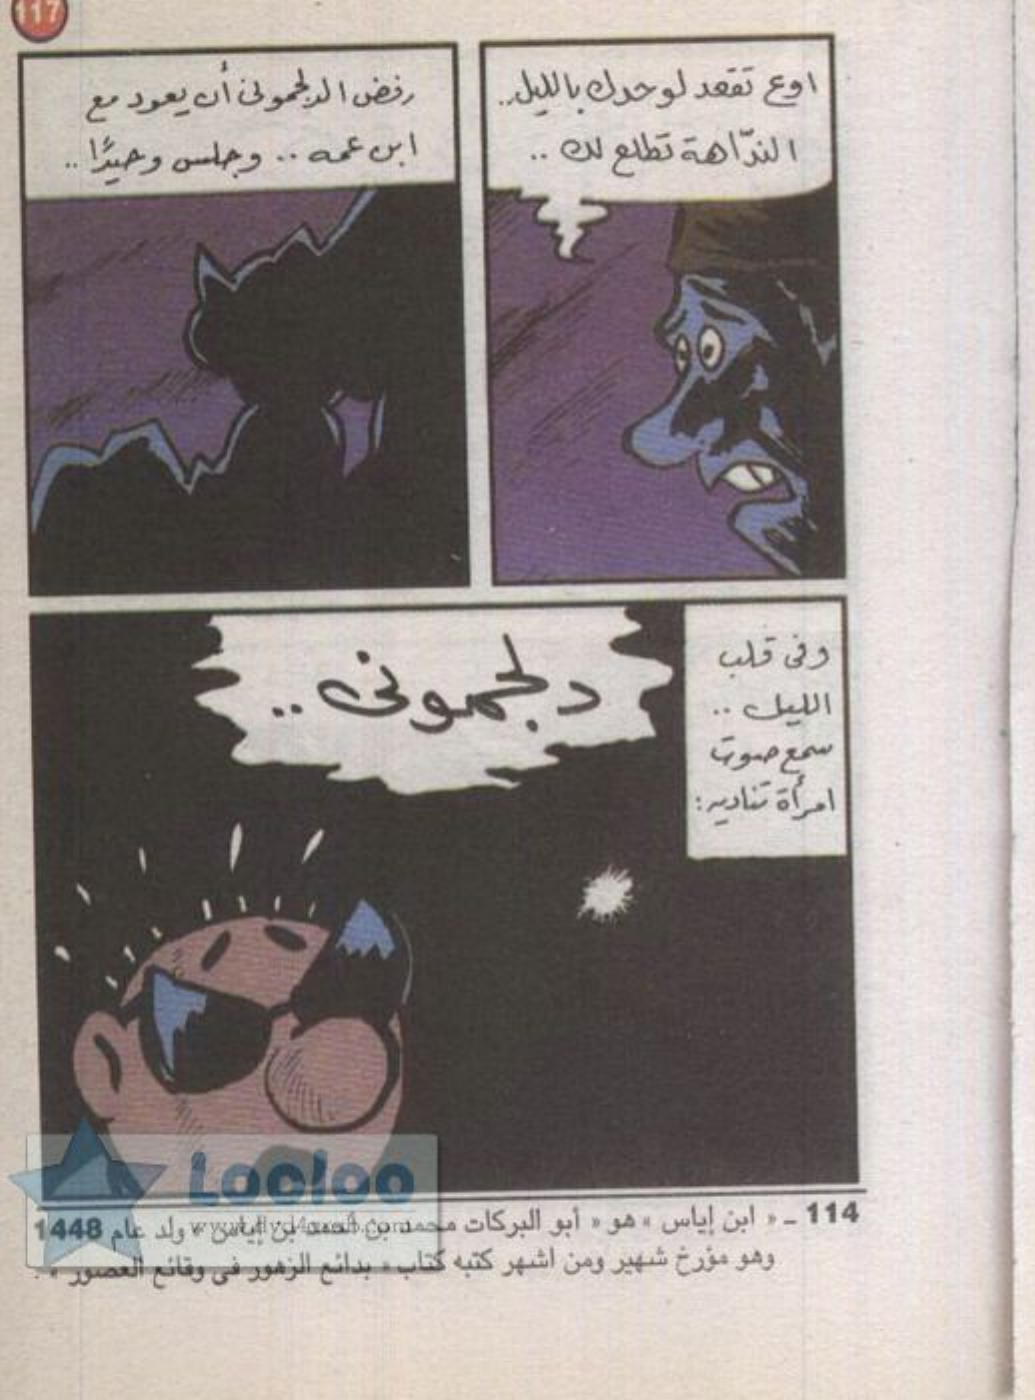 117
اوع تقعد لوحدك بالليل..
الندّاهة تطلع لك ..
رفض الدلجمونى أن يعود مع
ابن عمه .. وجلس وحيدًا ..
وفى قلب
الليل ..
سمع صوت
امرأة تناديه:
دلجمونى ..
Looloo
114 ـ « ابن إياس » هو « أبو البركات محمد بن أحمد بن إياس » ولد عام 1448
وهو مؤرخ شهير ومن اشهر كتبه كتاب « بدائع الزهور فى وقائع العصور » .